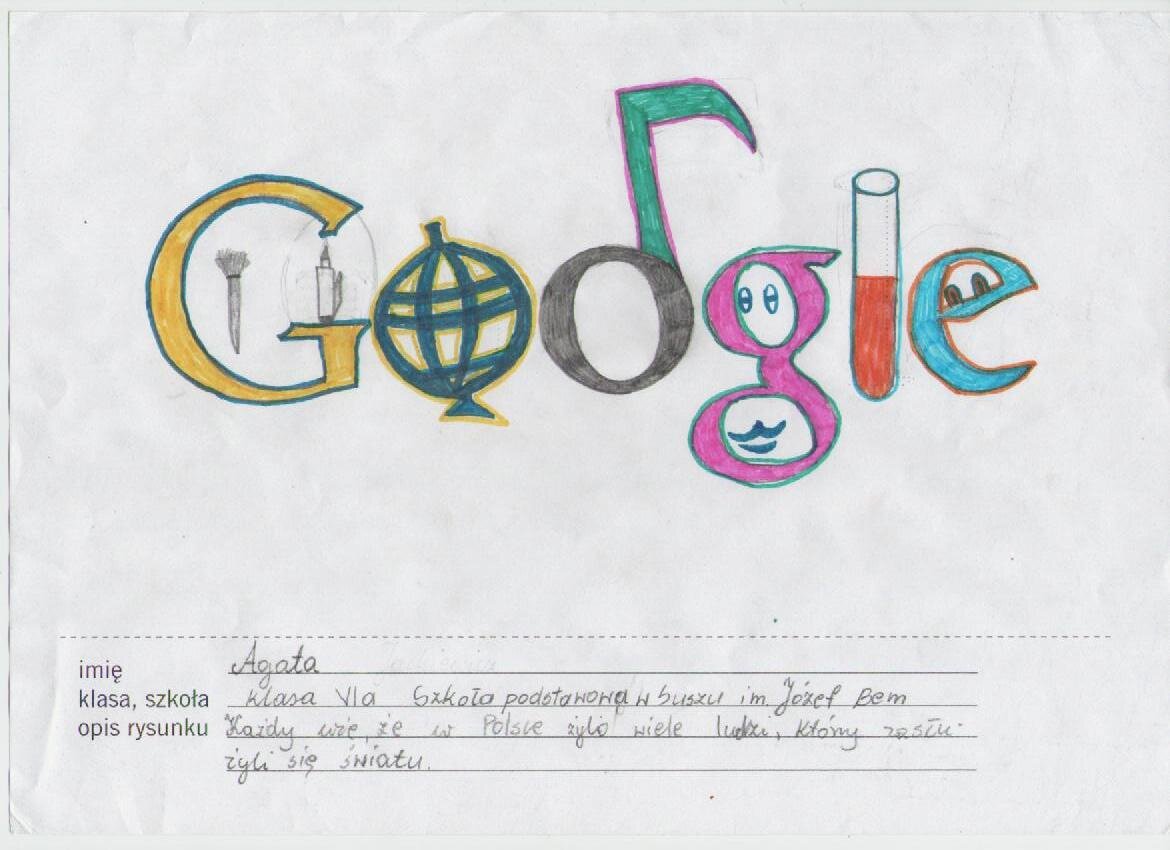 Google
imię Agata
klasa, szkoła klasa VIa Szkoła podstawowa w Suszu im. Józef Bem
opis rysunku Każdy wie, że w Polsce żyło wiele ludzi, którzy zasłu-
żyli się światu.